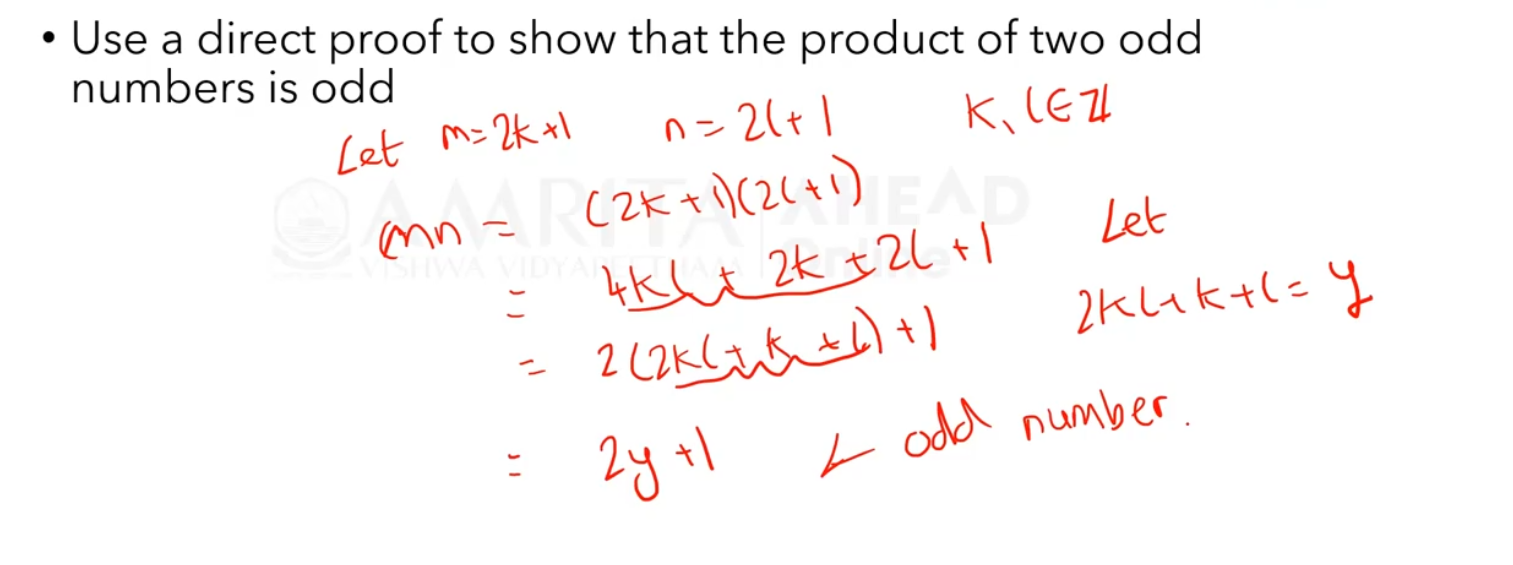 • Use a direct proof to show that the product of two odd
numbers is odd
Let m=2k+1 n=2l+1 k, l∈ℤ
mn = (2k+1)(2l+1)
= 4kl + 2k + 2l + 1
Let
= 2(2kl+k+l)+1
2kl+k+l=y
= 2y+1 ← odd number.
AMRITA AHEAD
VISHWA VIDYAPEETHAM Online